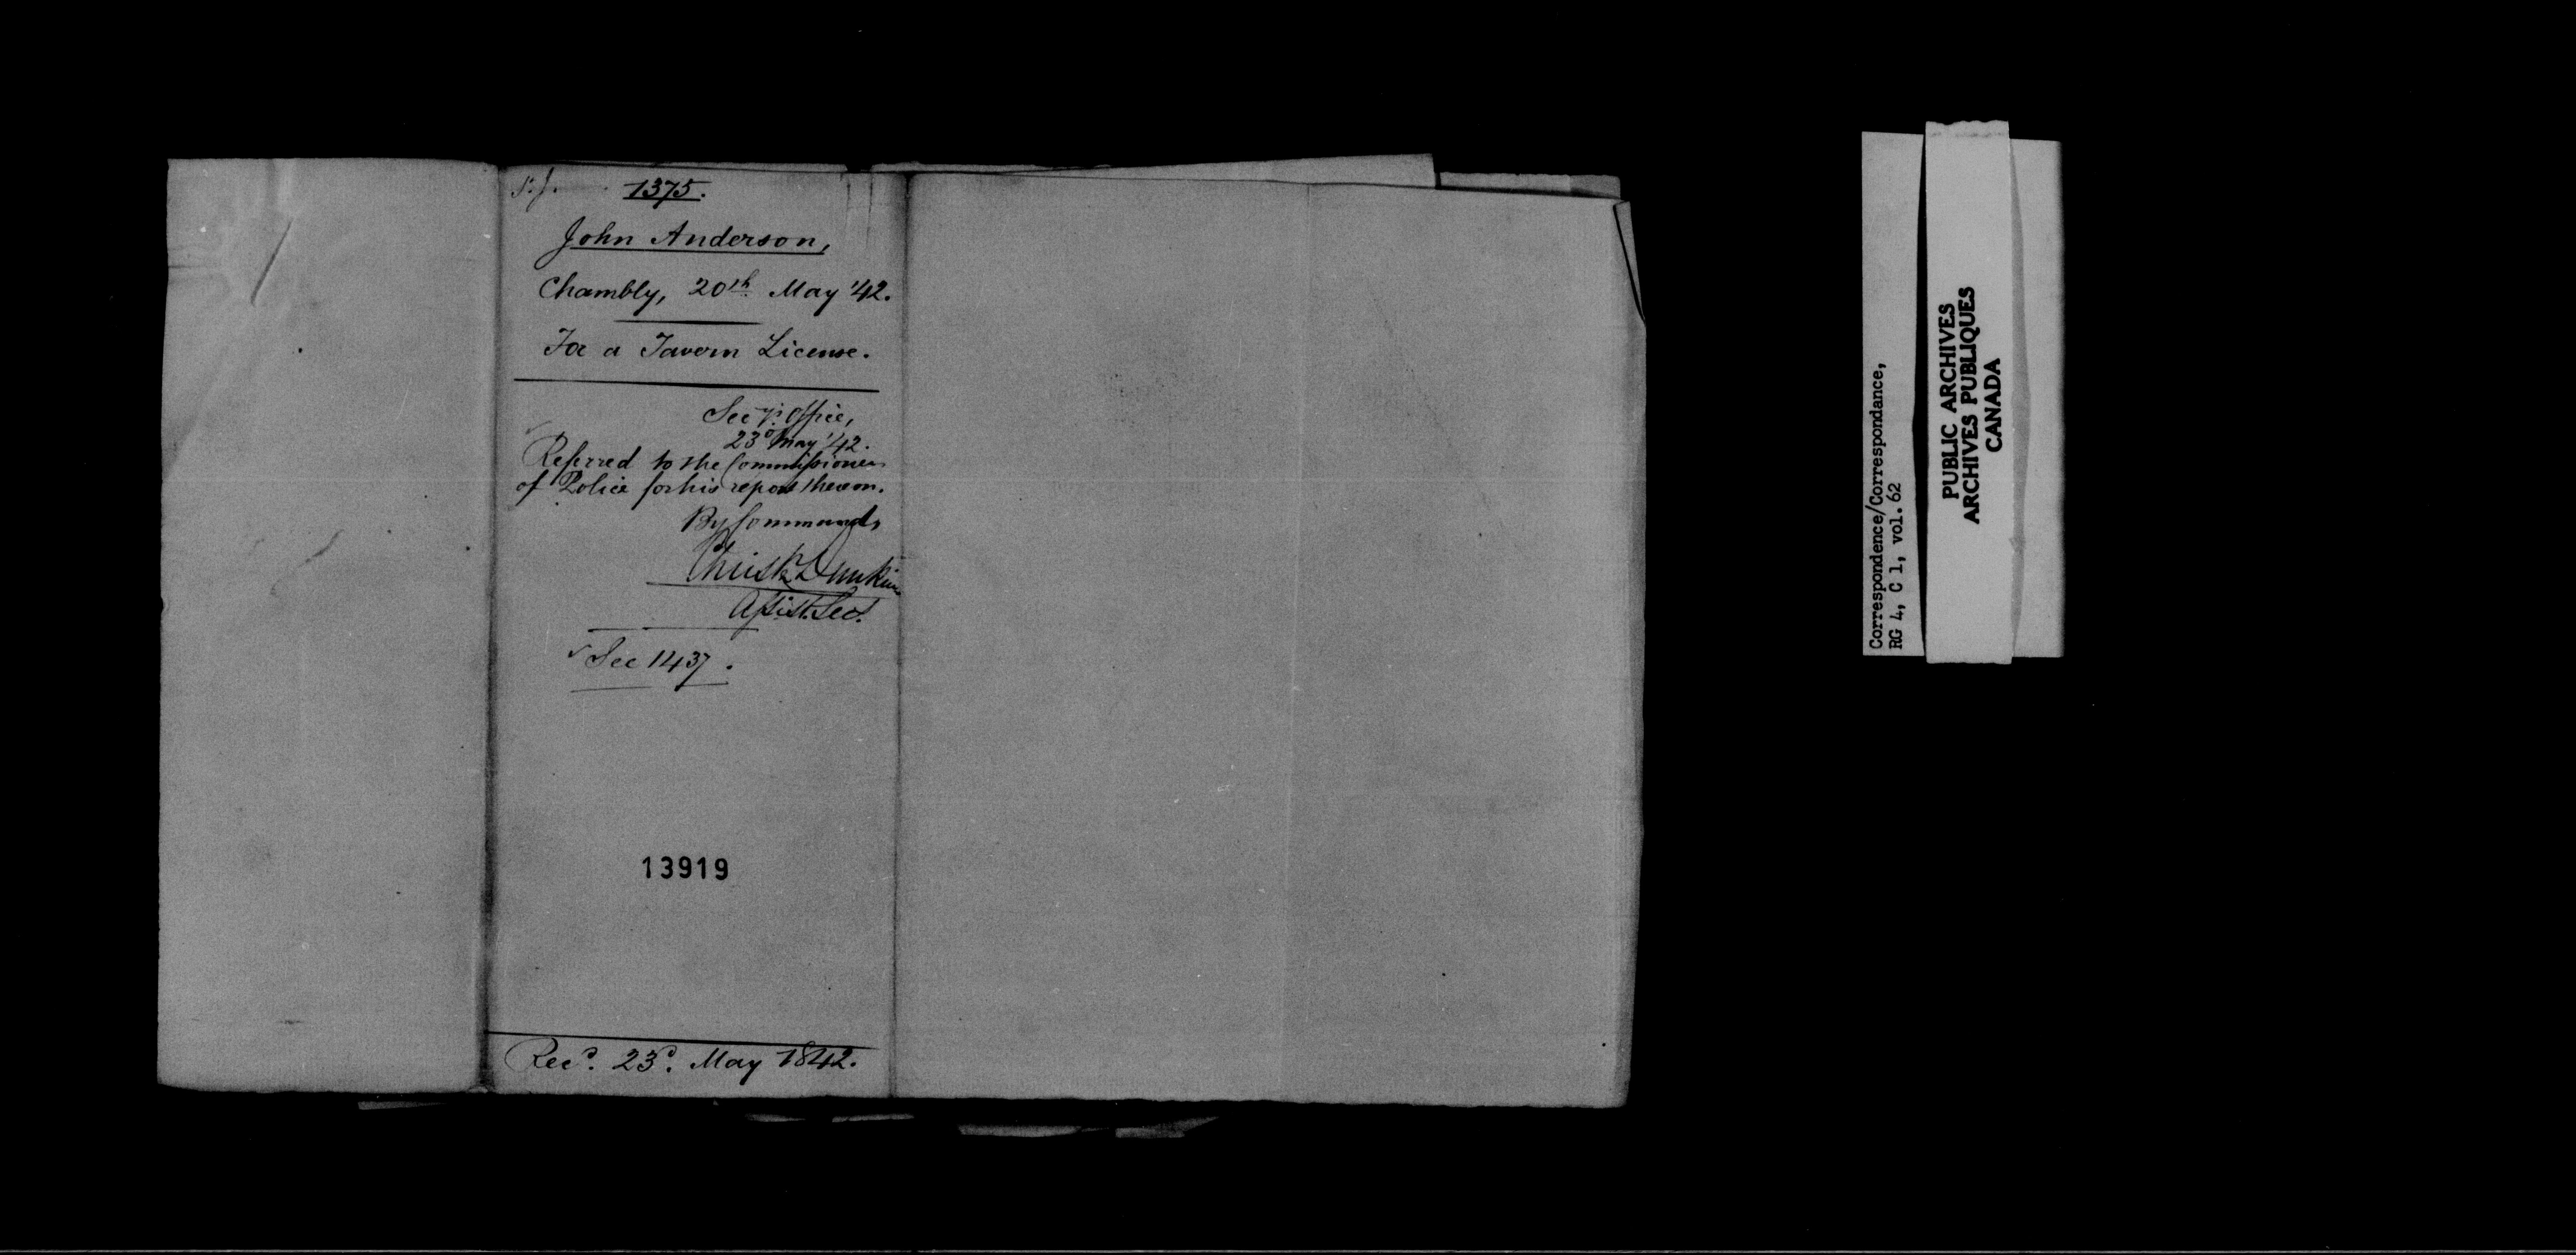 1375.
John Anderson,
Chambly, 20th May '42.
For a Tavern License.
Secy's Office,
23d May '42.
Referred to the Commissioner
of Police for his report thereon.
By Command,
Christr Dunkin
Assist. Sec.
See 1437.
13919
Recd. 23d. May 1842.
Correspondence/Correspondance,
RG 4, C 1, vol. 62
PUBLIC ARCHIVES
ARCHIVES PUBLIQUES
CANADA